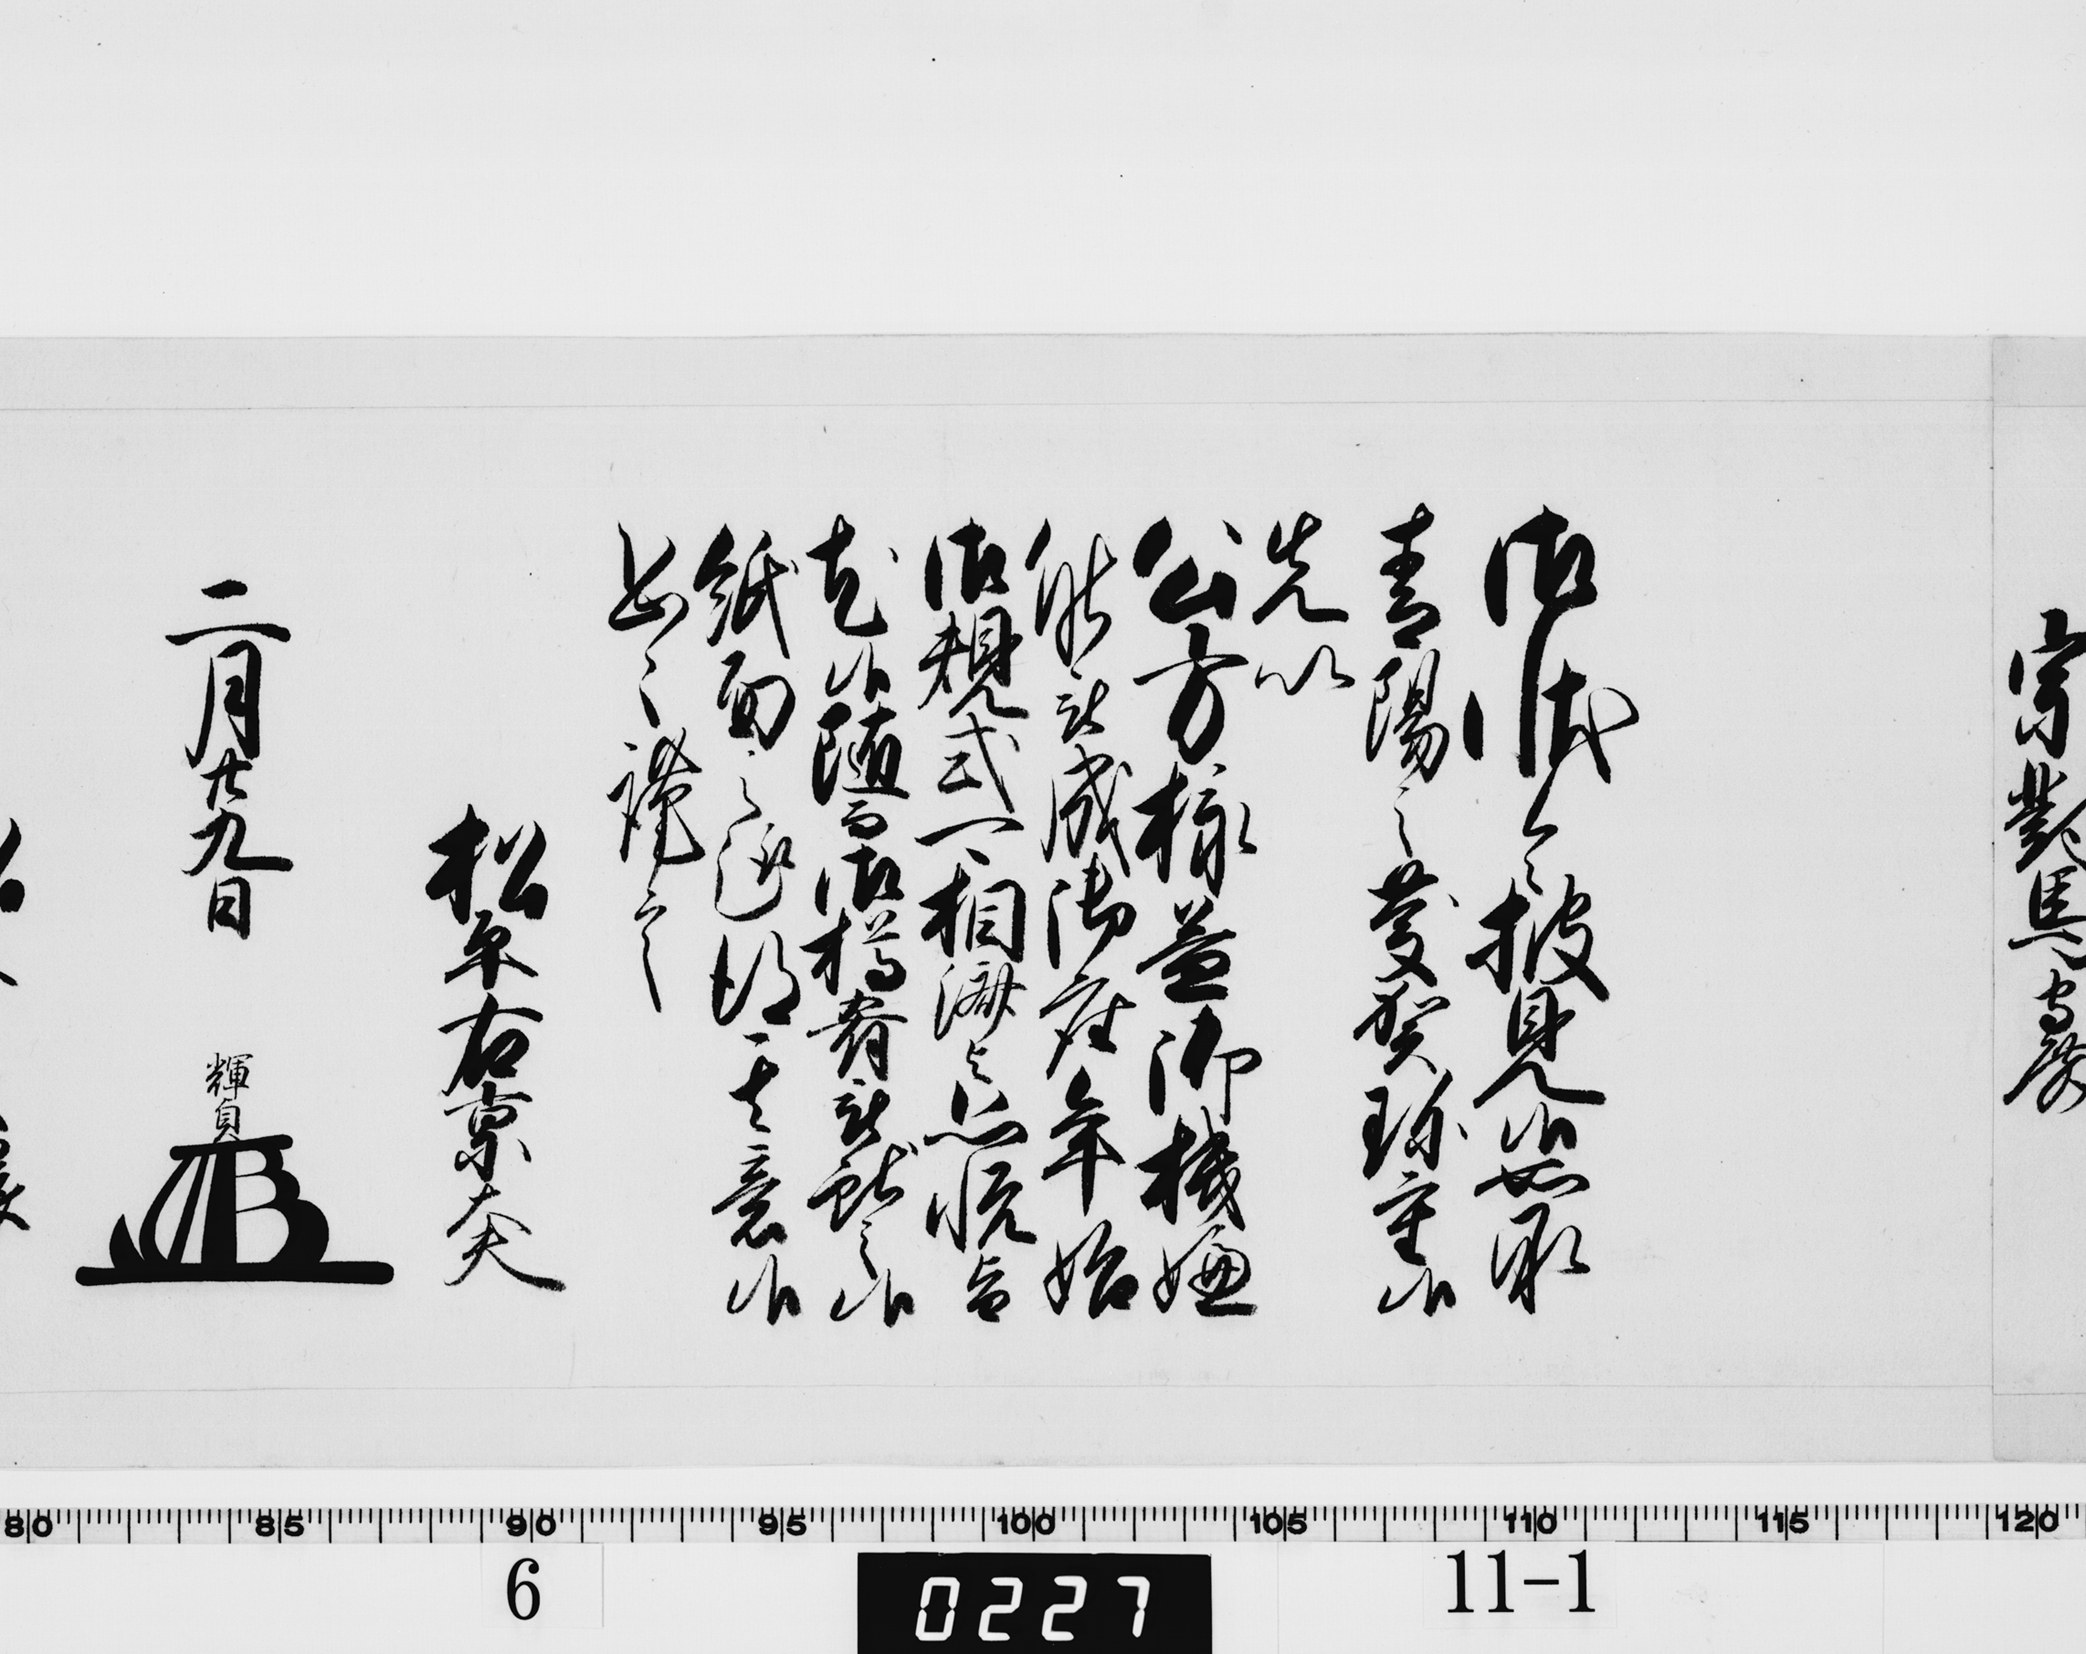 宗對馬守殿
御状令披見候如承
青陽之慶賀珍重候
先以
公方様益御機嫌
能被成御座年始
御規式一相濟
候随而御樽肴被献之候
紙面之趣得其意候
恐々謹言
松平右京大夫
二月廿九日
輝貞
80 85 90 95 100 105 110 115 120
6
0227
11-1